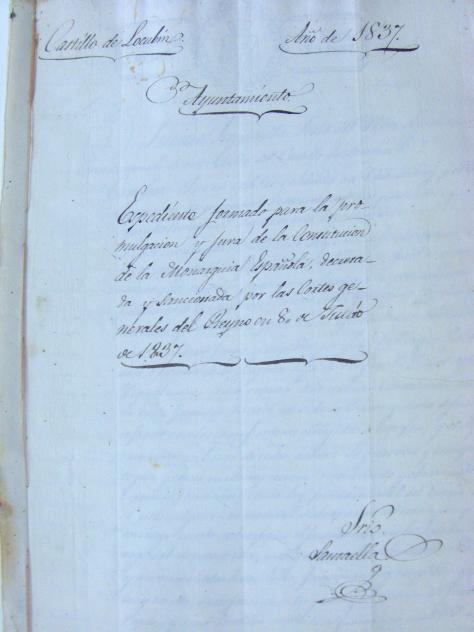 Castillo de Locubin. Año de 1837.
Ayuntamiento.
Expediente formado para la pro-
mulgacion y jura de la Constitucion
de la Monarquia Española, decreta-
da y sancionada por las Cortes ge-
nerales del Reyno en 8. de Junio
de 1837.
Srio.